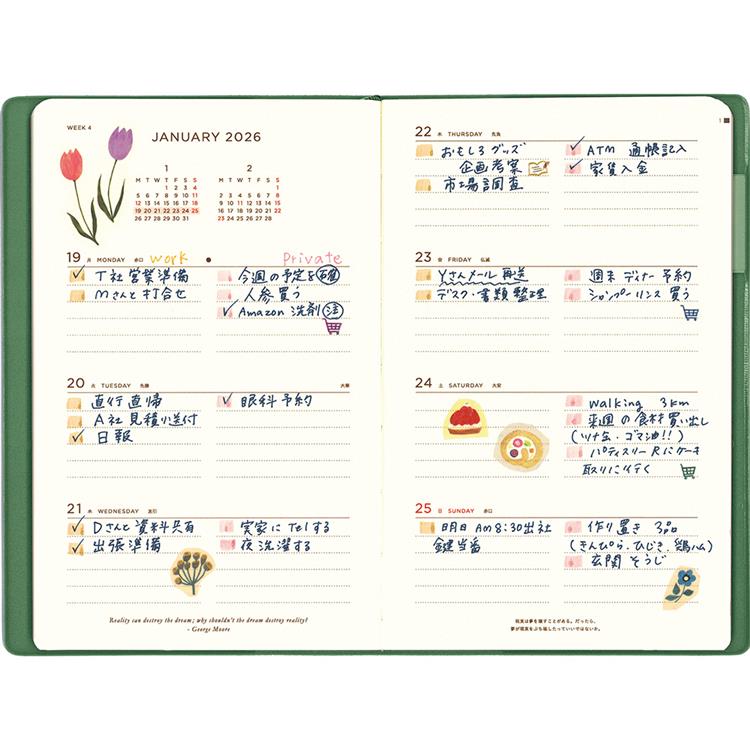 WEEK 4
JANUARY 2026
1
M T W T F S S
1 2 3 4
5 6 7 8 9 10 11
12 13 14 15 16 17 18
19 20 21 22 23 24 25
26 27 28 29 30 31
2
M T W T F S S
1
2 3 4 5 6 7 8
9 10 11 12 13 14 15
16 17 18 19 20 21 22
23 24 25 26 27 28
19 月 MONDAY 赤口 work Private
T社営業準備
Mさんと打合せ
今週の予定を確認
人参買う
Amazon 洗剤 注
20 火 TUESDAY 先勝 大寒
直行直帰
A社見積り送付
日報
眼科予約
21 水 WEDNESDAY 友引
Dさんと資料共有
出張準備
実家にTelする
夜洗濯する
Reality can destroy the dream; why shouldn't the dream destroy reality?
- George Moore
1
22 木 THURSDAY 先負
おもしろグッズ
企画考案
市場調査
ATM 通帳記入
家賃入金
23 金 FRIDAY 仏滅
Yさんメール再送
デスク・書類整理
週末ディナー予約
シャンプーリンス買う
24 土 SATURDAY 大安
walking 3km
来週の食材買い出し
(ツナ缶・ゴマ油!!)
パティスリーRにケーキ
取りに行く
25 日 SUNDAY 赤口
明日 AM8:30出社
鍵当番
作り置き 3品
(きんぴら・ひじき・鶏ハム)
玄関そうじ
現実は夢を壊すことがある。だったら、
夢が現実をぶち壊したっていいではないか。